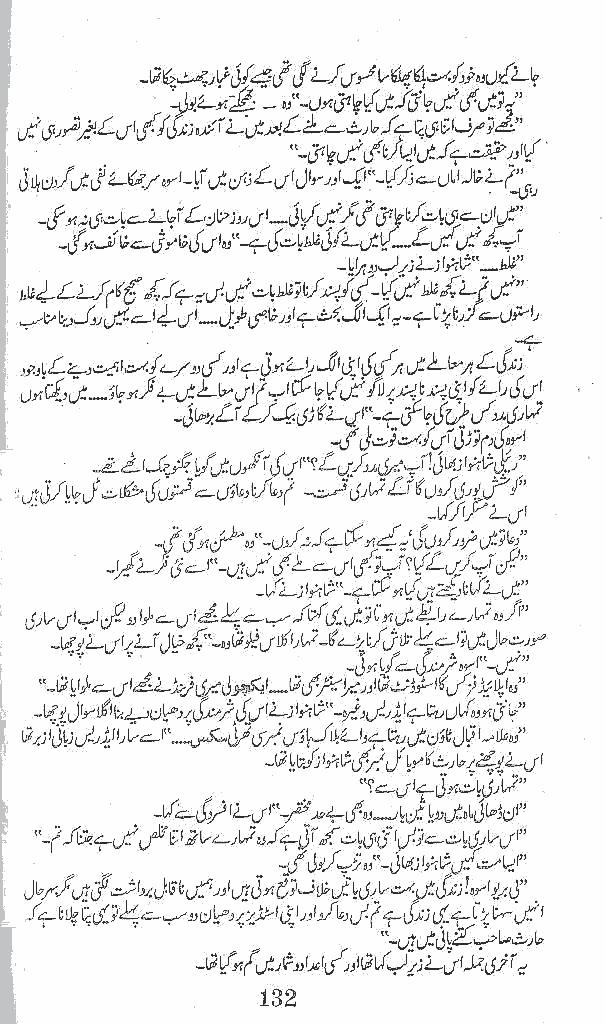 جانے کیوں وہ خود کو بہت ہلکا پھلکا سا محسوس کرنے لگی تھی جیسے کوئی غبار چھٹ چکا تھا۔
”یہ تو میں بھی نہیں جانتی کہ میں کیا چاہتی ہوں۔“ وہ ۔ جھجکتے ہوئے بولی۔
”مجھے تو صرف اتنا ہی پتا ہے کہ حارث سے ملنے کے بعد میں نے آئندہ زندگی کو کبھی اس کے بغیر تصور ہی نہیں
کیا اور حقیقت ہے کہ میں ایسا کرنا بھی نہیں چاہتی۔“
”تم نے خالہ اماں سے ذکر کیا۔“ ایک اور سوال اس کے ذہن میں آیا۔ اسوہ سر جھکائے نفی میں گردن ہلاتی
رہی۔
”میں ان سے ہی بات کرنا چاہتی تھی مگر نہیں کر پائی..... اس روز حنان کے آ جانے سے بات ہی نہ ہو سکی۔
آپ کچھ نہیں کہیں گے..... کیا میں نے کوئی غلط بات کی ہے۔“ وہ اس کی خاموشی سے خائف ہو گئی۔
”غلط.....“ شاہنواز نے زیر لب دوہرایا۔
”نہیں تم نے کچھ غلط نہیں کیا۔ کسی کو پسند کرنا تو غلط بات نہیں بس یہ ہے کہ کچھ صحیح کام کرنے کے لیے غلط
راستوں سے گزرنا پڑتا ہے۔ یہ ایک الگ بحث ہے اور خاصی طویل..... اس لیے اسے یہیں روک دینا مناسب
ہے۔
زندگی کے ہر معاملے میں ہر کسی کی اپنی الگ رائے ہوتی ہے اور کسی دوسرے کو بہت اہمیت دینے کے باوجود
اس کی رائے کو اپنی پسند نا پسند پر لاگو نہیں کیا جا سکتا اب تم اس معاملے میں بے فکر ہو جاؤ..... میں دیکھتا ہوں
تمہاری مدد کس طرح کی جا سکتی ہے۔“ اس نے گاڑی بیک کر کے آگے بڑھائی۔
اسوہ کی دم توڑتی آس کو بہت قوت ملی تھی۔
”رئیلی شاہنواز بھائی! آپ میری مدد کریں گے؟“ اس کی آنکھوں میں گویا جگنو چمک اٹھے تھے۔
”کوشش پوری کروں گا آگے تمہاری قسمت۔ تم دعا کرنا دعاؤں سے قسمتوں کی مشکلات ٹل جایا کرتی ہیں۔“
اس نے مسکرا کر کہا۔
”دعا تو میں ضرور کروں گی‘ یہ کیسے ہو سکتا ہے کہ نہ کروں۔“ وہ مطمئن ہو گئی تھی۔
”لیکن آپ کریں گے کیا؟ آپ تو کبھی اس سے ملے بھی نہیں ہیں۔“ اسے نئی فکر نے گھیرا۔
”میں نے کہا نا دیکھتے ہیں کیا ہو سکتا ہے۔“ شاہنواز نے کہا۔
”اگر وہ تمہارے رابطے میں ہوتا تو میں یہی کہتا کہ سب سے پہلے مجھے اس سے ملوا دو لیکن اب اس ساری
صورت حال میں تو اسے پہلے تلاش کرنا پڑے گا۔ تمہارا کلاس فیلو تھا وہ۔“ کچھ خیال آنے پر اس نے پوچھا۔
”نہیں۔“ اسوہ شرمندگی سے گویا ہوئی۔
”وہ اپلائیڈ فزکس کا اسٹوڈنٹ تھا اور میرا سینئر بھی تھا..... ایکچوئلی میری فرینڈ نے مجھے اس سے ملوایا تھا۔“
”جانتی ہو وہ کہاں رہتا ہے ایڈریس وغیرہ۔“ شاہنواز نے اس کی شرمندگی پر دھیان دیے بنا اگلا سوال پوچھا۔
”وہ علامہ اقبال ٹاؤن میں رہتا ہے وائے بلاک ہاؤس نمبر سی تھرٹی سکس.....“ اسے سارا ایڈریس زبانی ازبر تھا
اس نے پوچھنے پر حارث کا موبائل نمبر بھی شاہنواز کو بتایا تھا۔
”تمہاری بات ہوتی ہے اس سے؟“
”ان ڈھائی ماہ میں دو یا تین بار..... وہ بھی بے حد مختصر۔“ اس نے افسردگی سے کہا۔
”اس ساری بات سے تو بس اتنی ہی بات سمجھ آتی ہے کہ وہ تمہارے ساتھ اتنا مخلص نہیں ہے جتنا کہ تم۔“
”ایسا مت کہیں شاہنواز بھائی۔“ وہ تڑپ کر بولی تھی۔
”بی بریو اسوہ! زندگی میں بہت ساری باتیں خلاف توقع ہوتی ہیں اور ہمیں ناقابل برداشت لگتی ہیں مگر بہر حال
انہیں سہنا پڑتا ہے یہی زندگی ہے تم بس دعا کرو اور اپنی اسٹڈیز پر دھیان دو سب سے پہلے تو یہی پتا چلانا ہے کہ
حارث صاحب کتنے پانی میں ہیں۔“
یہ آخری جملہ اس نے زیر لب کہا تھا اور کسی اعداد و شمار میں گم ہو گیا تھا۔
132